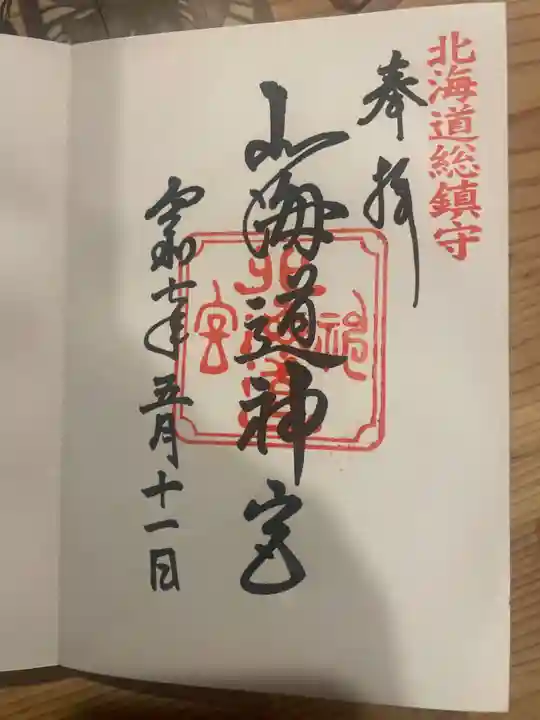 北海道総鎮守
奉拝
北海道神宮
北海道神宮
令和七年五月十一日